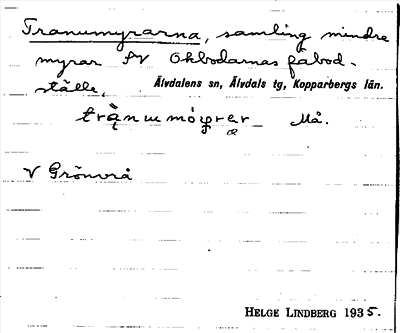 Tranumyrarna, samling mindre
myrar SV Okbodarnas fäbod-
ställe,
Älvdalens sn, Älvdals tg, Kopparbergs län.
Må.
V Grönvrå
HELGE LINDBERG 1935.